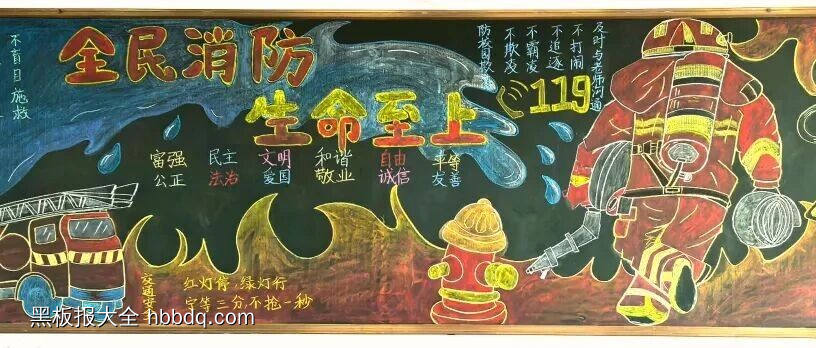 不盲目施救
全民消防
生命至上
119
防校园欺凌
不欺凌
不霸凌
不追逐
不打闹
及时与老师沟通
富强 民主 文明 和谐 自由 平等
公正 法治 爱国 敬业 诚信 友善
交通安
红灯停,绿灯行
宁等三分,不抢一秒
黑板报大全 hbbdq.com